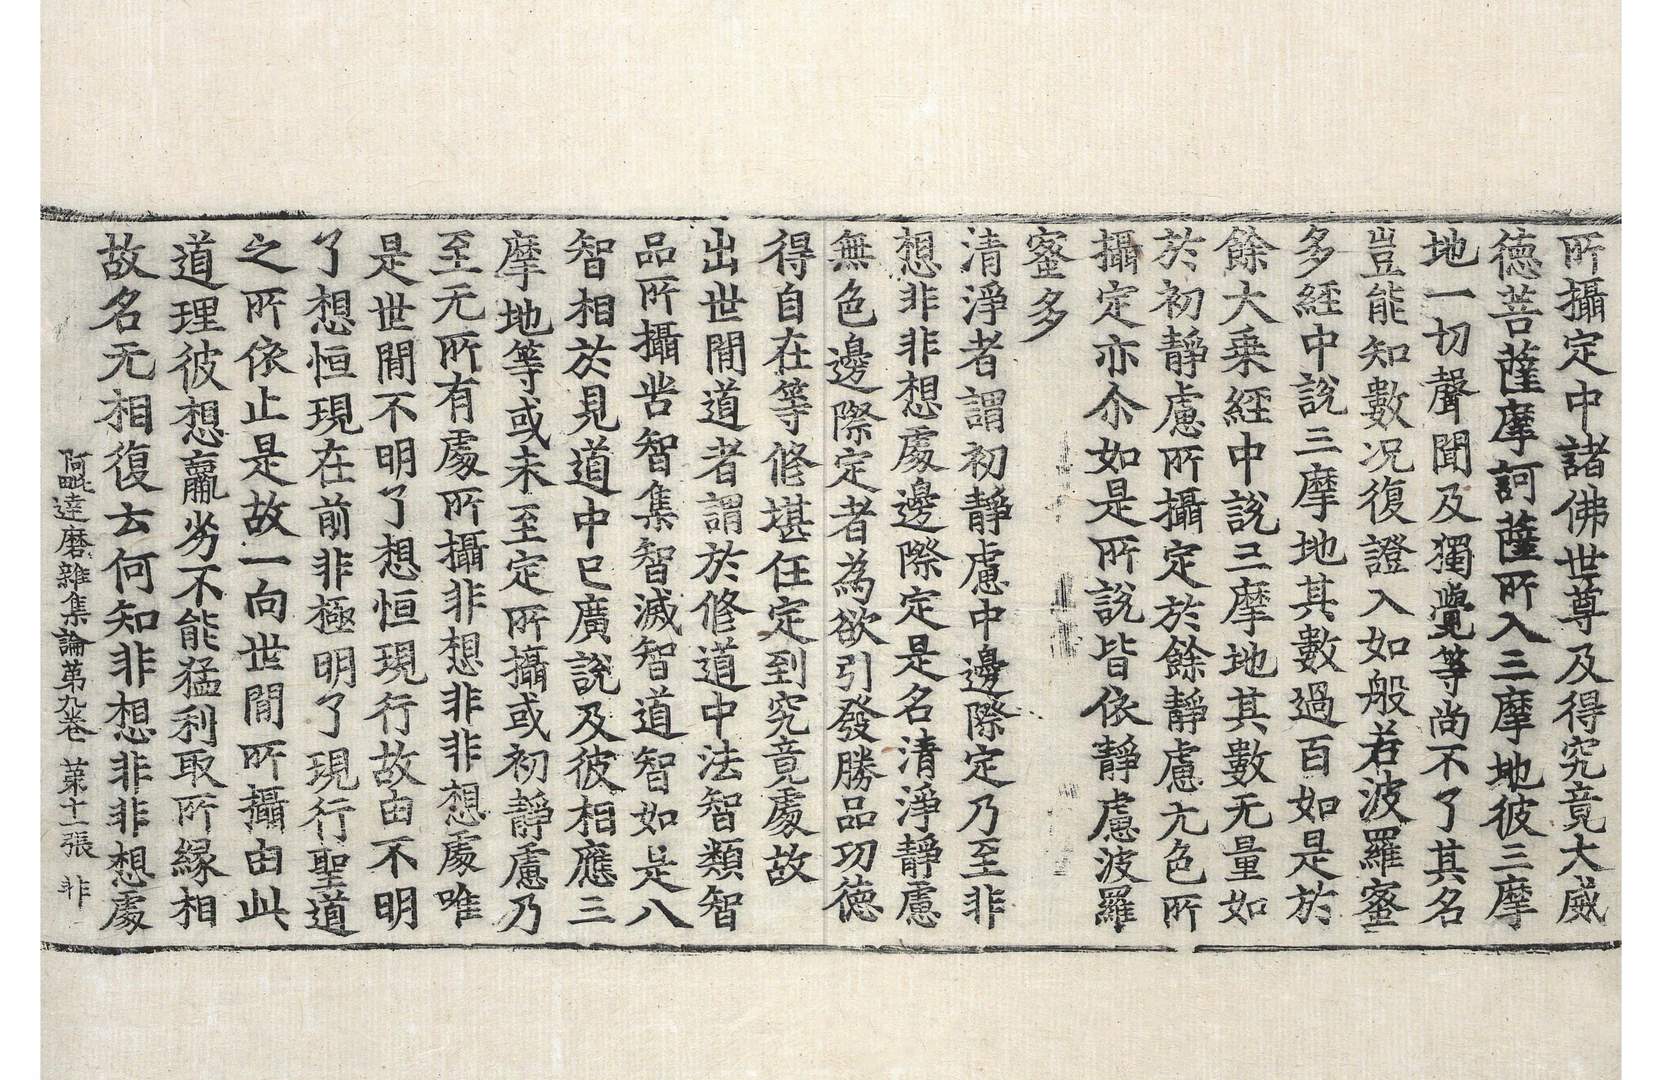 所攝定中諸佛世尊及得究竟大威
德菩薩摩訶薩所入三摩地彼三摩
地一切聲聞及獨覺等尚不了其名
豈能知數况復證入如般若波羅蜜
多經中說三摩地其數過百如是於
餘大乘經中說三摩地其數无量如
於初靜慮所攝定於餘靜慮无色所
攝定亦尒如是所說皆依靜慮波羅
蜜多
清淨者謂初靜慮中邊際定乃至非
想非非想處邊際定是名清淨靜慮
無色邊際定者為欲引發勝品功德
得自在等修堪任定到究竟處故
出世間道者謂於修道中法智類智
品所攝苦智集智滅智道智如是八
智相於見道中已廣說及彼相應三
摩地等或未至定所攝或初靜慮乃
至无所有處所攝非想非非想處唯
是世間不明了想恒現行故由不明
了想恒現在前非極明了現行聖道
之所依止是故一向世間所攝由此
道理彼想羸劣不能猛利取所緣相
故名无相復云何知非想非非想處
阿毗達磨雜集論第九卷 第十一張 非